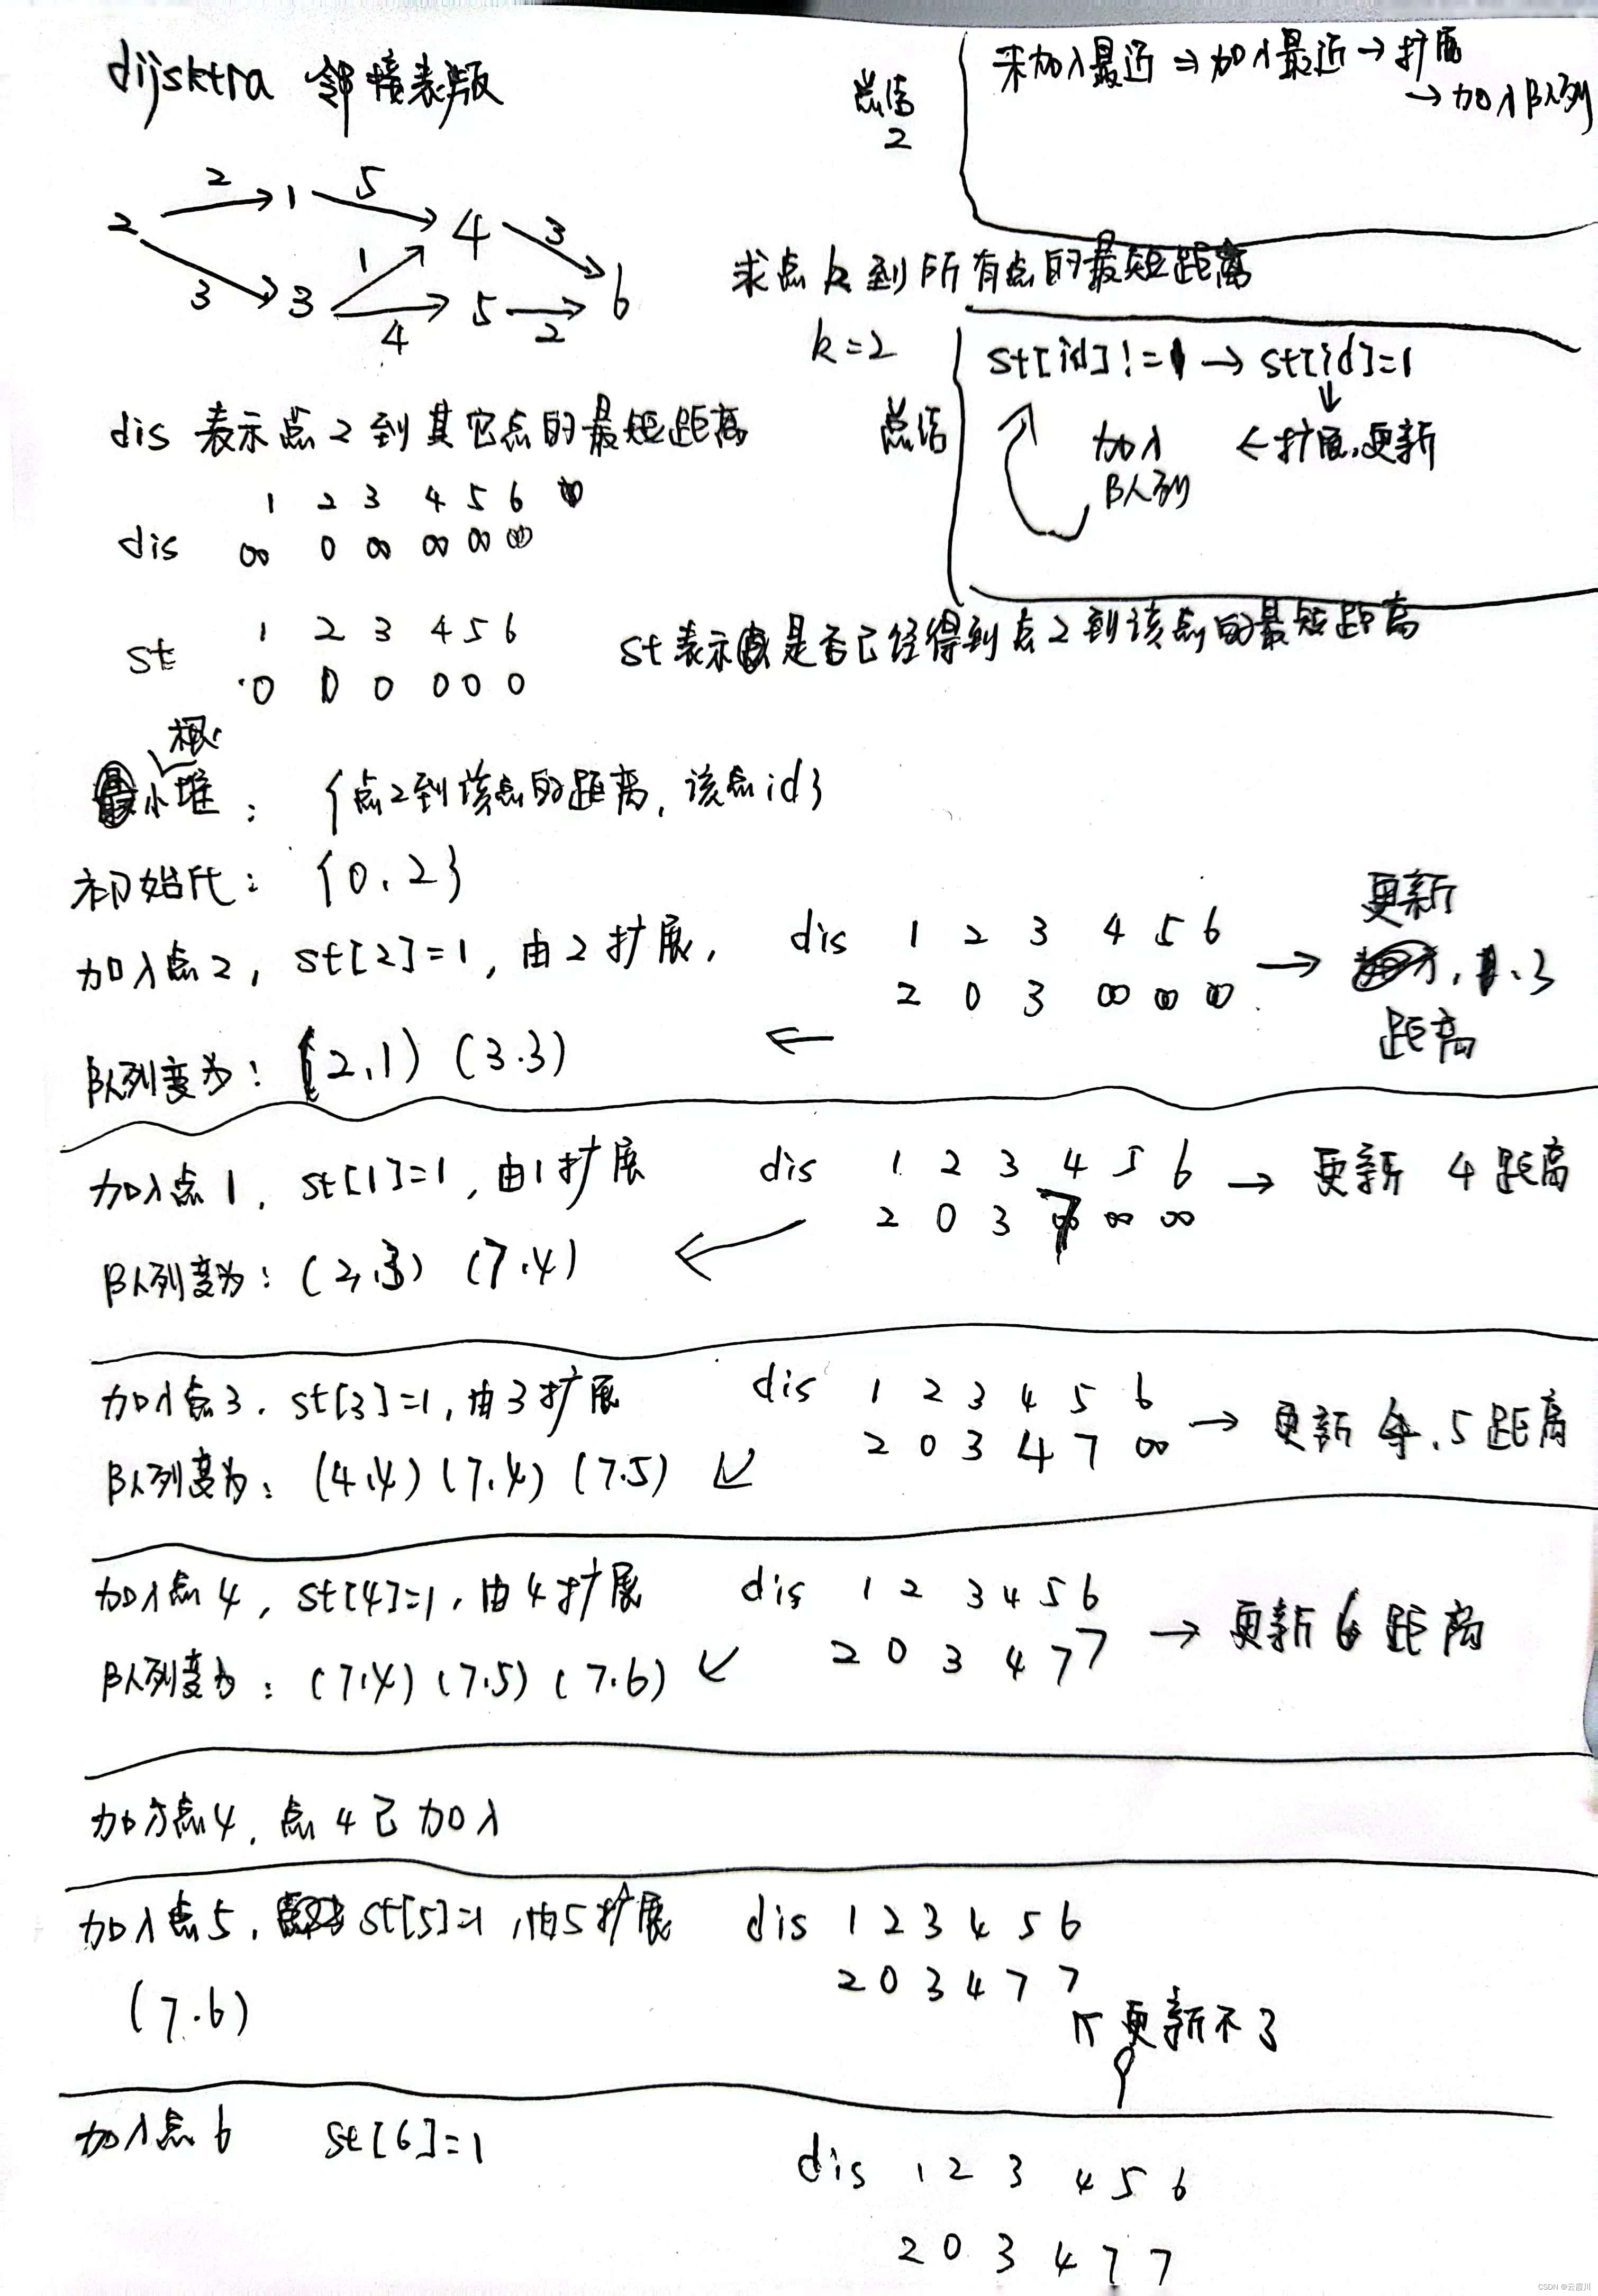 dijsktra 邻接表版
总结
2
未加入最近 ⇒ 加入最近 → 扩展
→ 加入队列
2 1 5
2 1 4 3
1
3 3 4 5 2 6
求点k到所有点的最短距离
k=2
总结
st[id]!=1 → st[id]=1
↓
加入 ← 扩展,更新
队列
dis 表示点2到其它点的最短距离
1 2 3 4 5 6
dis ∞ 0 ∞ ∞ ∞ ∞
1 2 3 4 5 6
st 0 0 0 0 0 0
st表示 是否已经得到点2到该点的最短距离
小根堆: {点2到该点的距离, 该点id}
初始化: {0, 2}
加入点2, st[2]=1, 由2扩展, dis 1 2 3 4 5 6
2 0 3 ∞ ∞ ∞ → 更新 1、3 距离
队列变为: (2,1) (3.3) ←
加入点1, st[1]=1, 由1扩展 dis 1 2 3 4 5 6 → 更新 4 距离
2 0 3 7 ∞ ∞
队列变为: (2,3) (7.4) ←
加入点3. st[3]=1, 由3扩展 dis 1 2 3 4 5 6
2 0 3 4 7 ∞ → 更新 4、5 距离
队列变为: (4.4) (7.4) (7.5) ↙
加入点4, st[4]=1, 由4扩展 dis 1 2 3 4 5 6
2 0 3 4 7 7 → 更新 6 距离
队列变为: (7.4) (7.5) (7.6) ↙
加入点4, 点4已加入
加入点5, st[5]=1, 由5扩展 dis 1 2 3 4 5 6
2 0 3 4 7 7
(7.6)
↖ 更新不了
加入点6 st[6]=1
dis 1 2 3 4 5 6
2 0 3 4 7 7
CSDN @云霞川